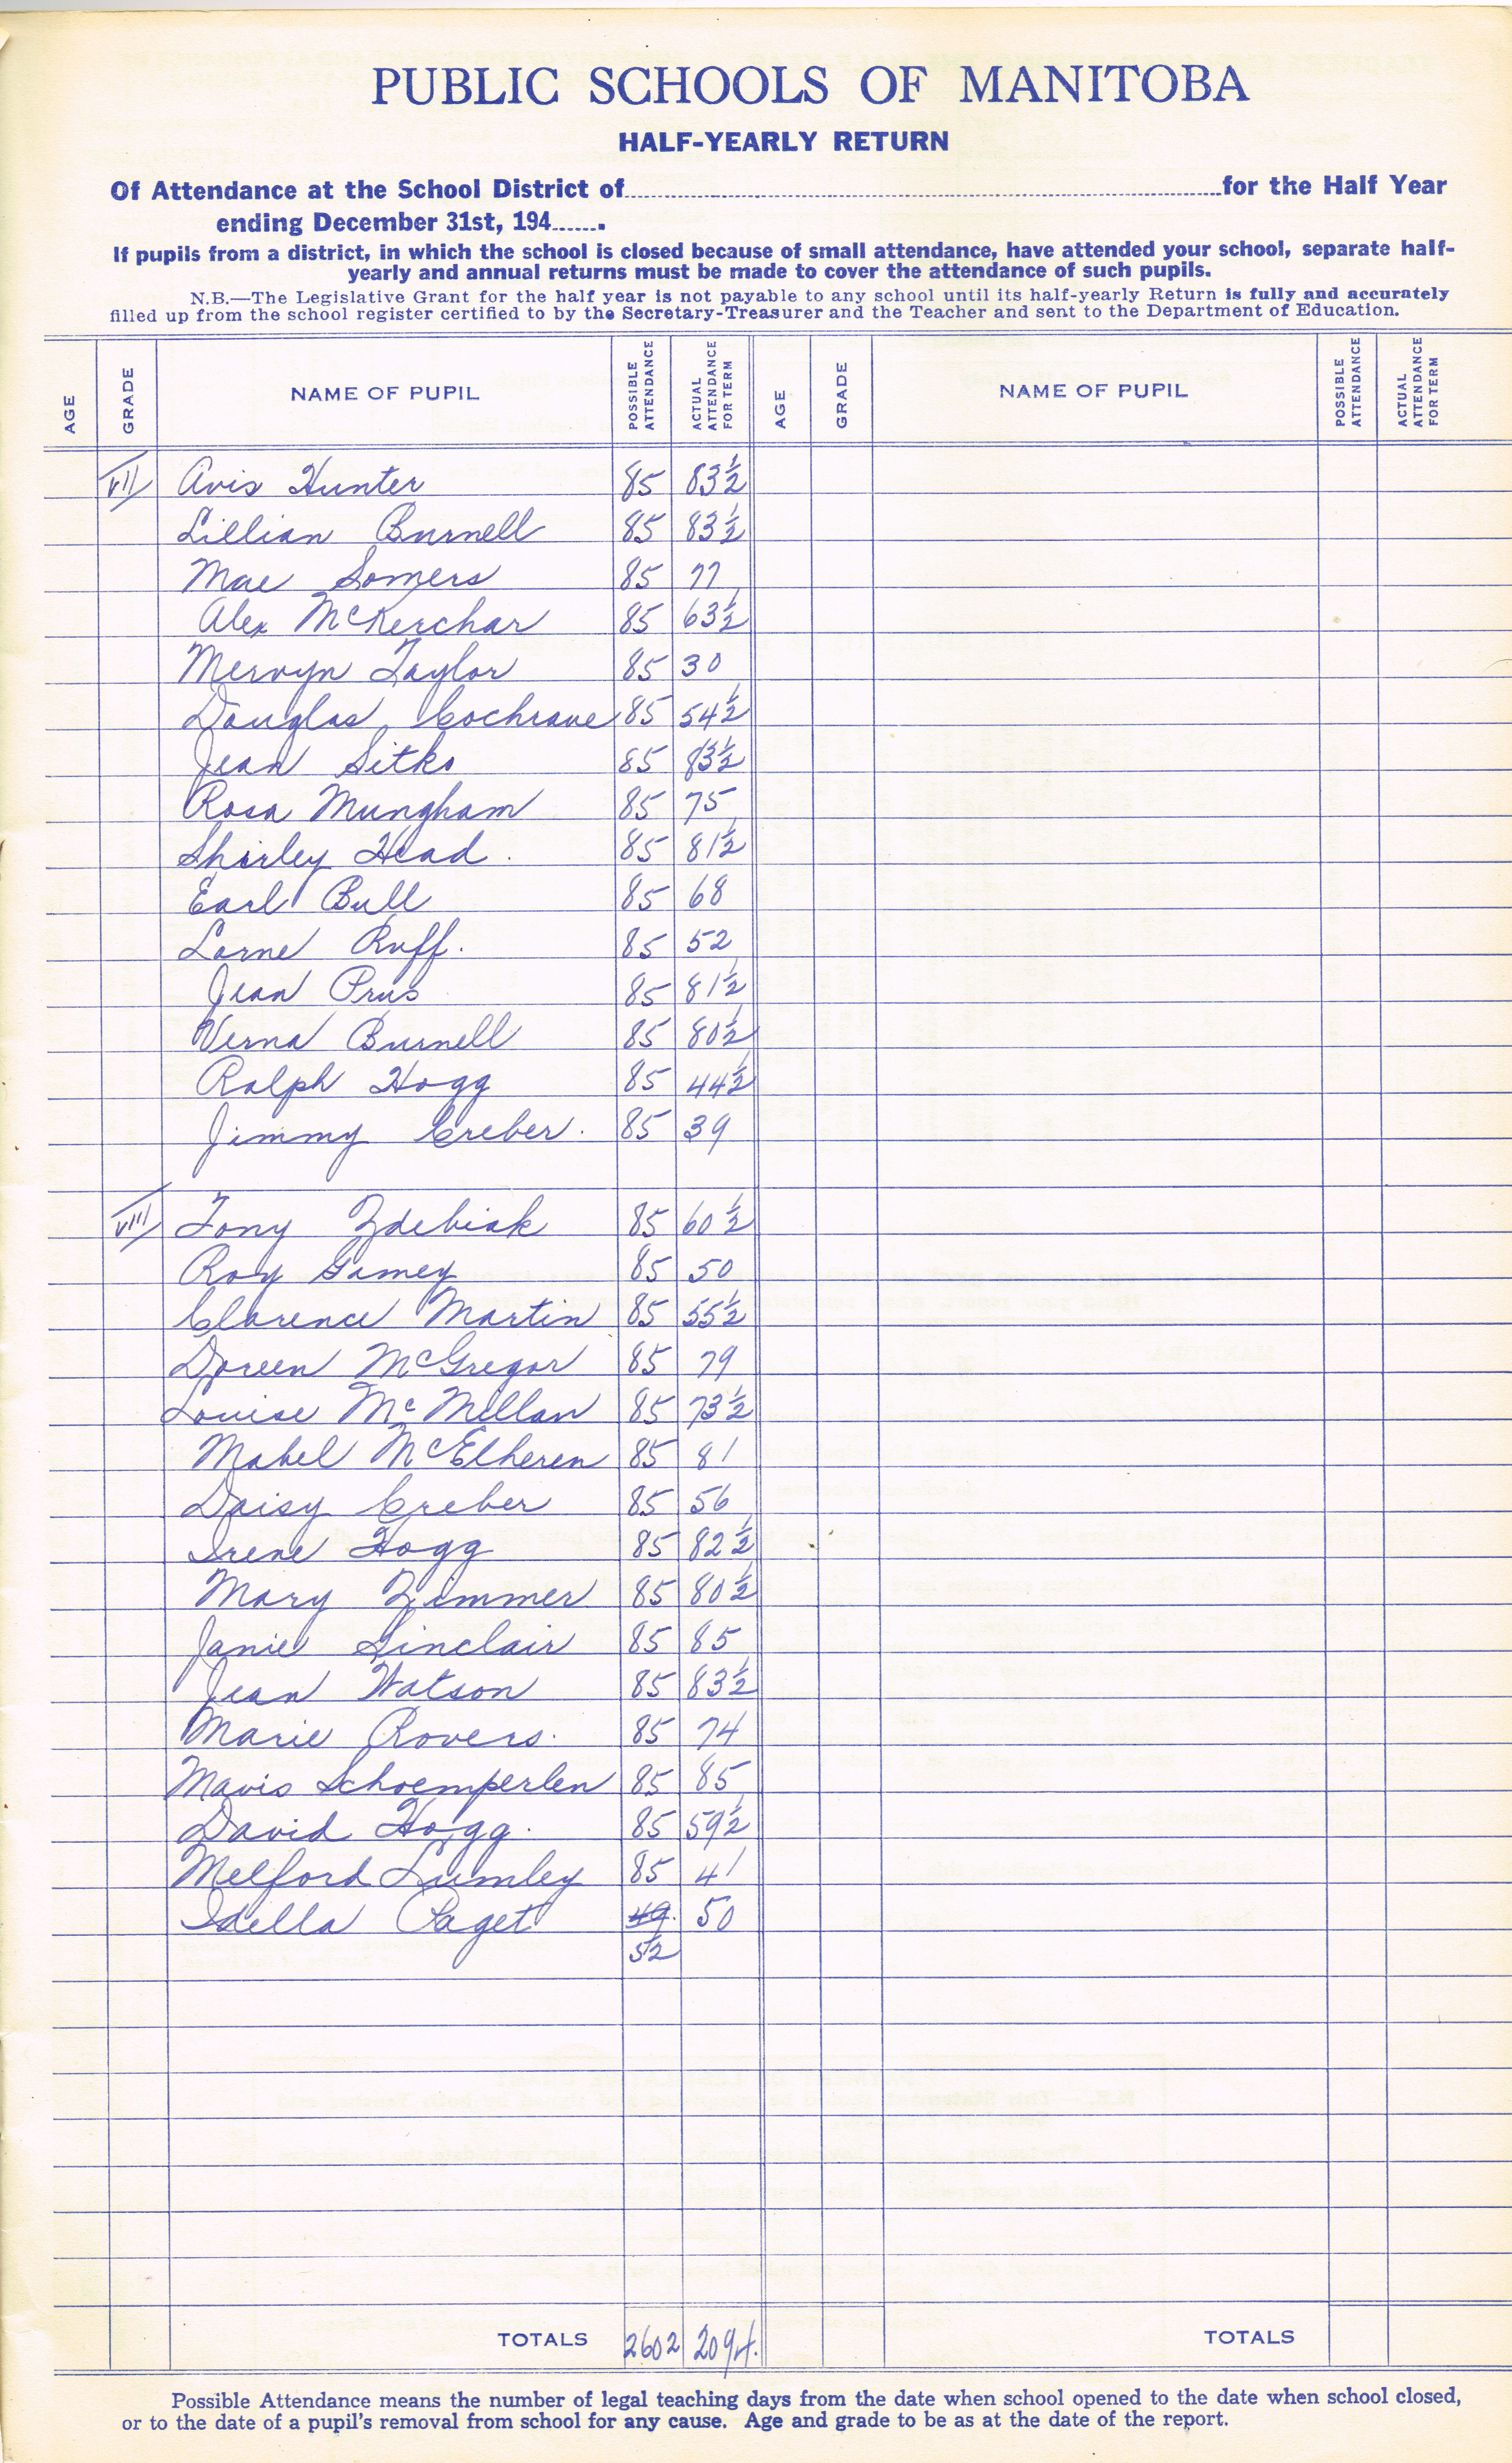 PUBLIC SCHOOLS OF MANITOBA
HALF-YEARLY RETURN
Of Attendance at the School District of............for the Half Year
ending December 31st, 194.......
If pupils from a district, in which the school is closed because of small attendance, have attended your school, separate half-
yearly and annual returns must be made to cover the attendance of such pupils.
N.B.—The Legislative Grant for the half year is not payable to any school until its half-yearly Return is fully and accurately
filled up from the school register certified to by the Secretary-Treasurer and the Teacher and sent to the Department of Education.
AGE GRADE NAME OF PUPIL POSSIBLE ATTENDANCE ACTUAL ATTENDANCE FOR TERM AGE GRADE NAME OF PUPIL POSSIBLE ATTENDANCE ACTUAL ATTENDANCE FOR TERM
VII Avis Hunter 85 83½
Lillian Burnell 85 83½
Mae Somers 85 77
Alex McKerchar 85 63½
Mervyn Taylor 85 30
Douglas Cochrane 85 54½
Jean Sitko 85 83½
Rosa Mungham 85 75
Shirley Head. 85 81½
Earl Bull 85 68
Lorne Ruff. 85 52
Jean Prus 85 81½
Verna Burnell 85 80½
Ralph Hogg 85 44½
Jimmy Creber. 85 39
VIII Tony Zdebiak 85 60½
Roy Gamey 85 50
Clarence Martin 85 55½
Doreen McGregor 85 79
Louise McMillan 85 73½
Mabel McElheren 85 81
Daisy Creber 85 56
Irene Hogg 85 82½
Mary Zimmer 85 80½
Janie Sinclair 85 85
Jean Watson 85 83½
Marie Rovers. 85 74
Mavis Schoemperlen 85 85
David Hogg. 85 59½
Melford Lumley 85 41
Idella Paget 49. 50
52
TOTALS 2602 2094. TOTALS
Possible Attendance means the number of legal teaching days from the date when school opened to the date when school closed,
or to the date of a pupil's removal from school for any cause. Age and grade to be as at the date of the report.